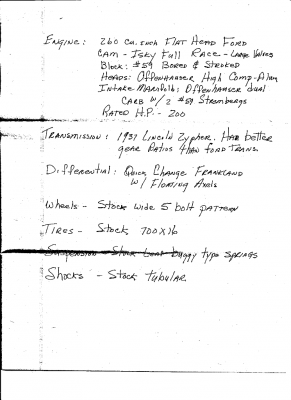 Engine: 260 cu. inch Flat Head Ford
Cam - Isky Full Race - Large Valves
Block: #59 Bored & Stroked
Heads: Offenhauser High Comp-Alum
Intake Manifold: Offenhauser dual
Carb w/2 #59 Strombergs
Rated H.P. - 200
Transmission: 1937 Lincoln Zypher. Had better
gear Ratios than Ford Trans.
Differential: Quick Change Frankland
w/ Floating Axels
Wheels - Stock wide 5 bolt pattern
Tires - Stock 700x16
Suspension - Stock buggy type springs
Shocks - Stock tubular